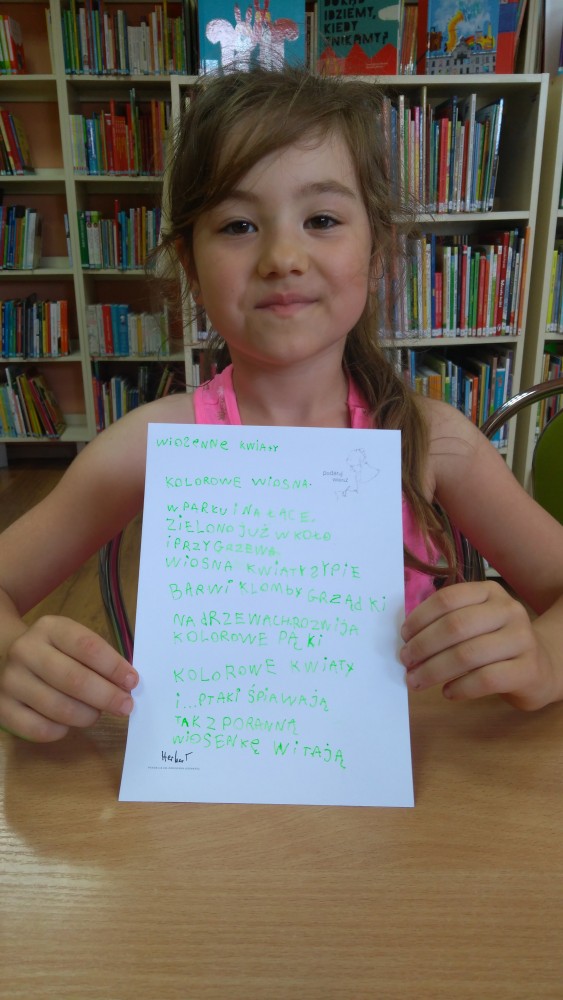 DOKĄD
IDZIEMY,
KIEDY
ZNIKAMY?
WIOZENNE KWIATY
KOLOROWE WIOSNA.
W PARKU I NA ŁACE,
ZIELONO JUŻ W KOŁO
I PRZYGRZEWA
WIOSNA KWIATY ZYPIE
BARWI KLOMBY GRZĄDKI
NA dRZEWACHROZNIJA
KOLOROWE PĄKI
KOLOROWE KWIATY
i...PTAKI ŚPIAWAJĄ
TAK Z PORANNĄ
WIOSENKĘ WITAJĄ
HerberT